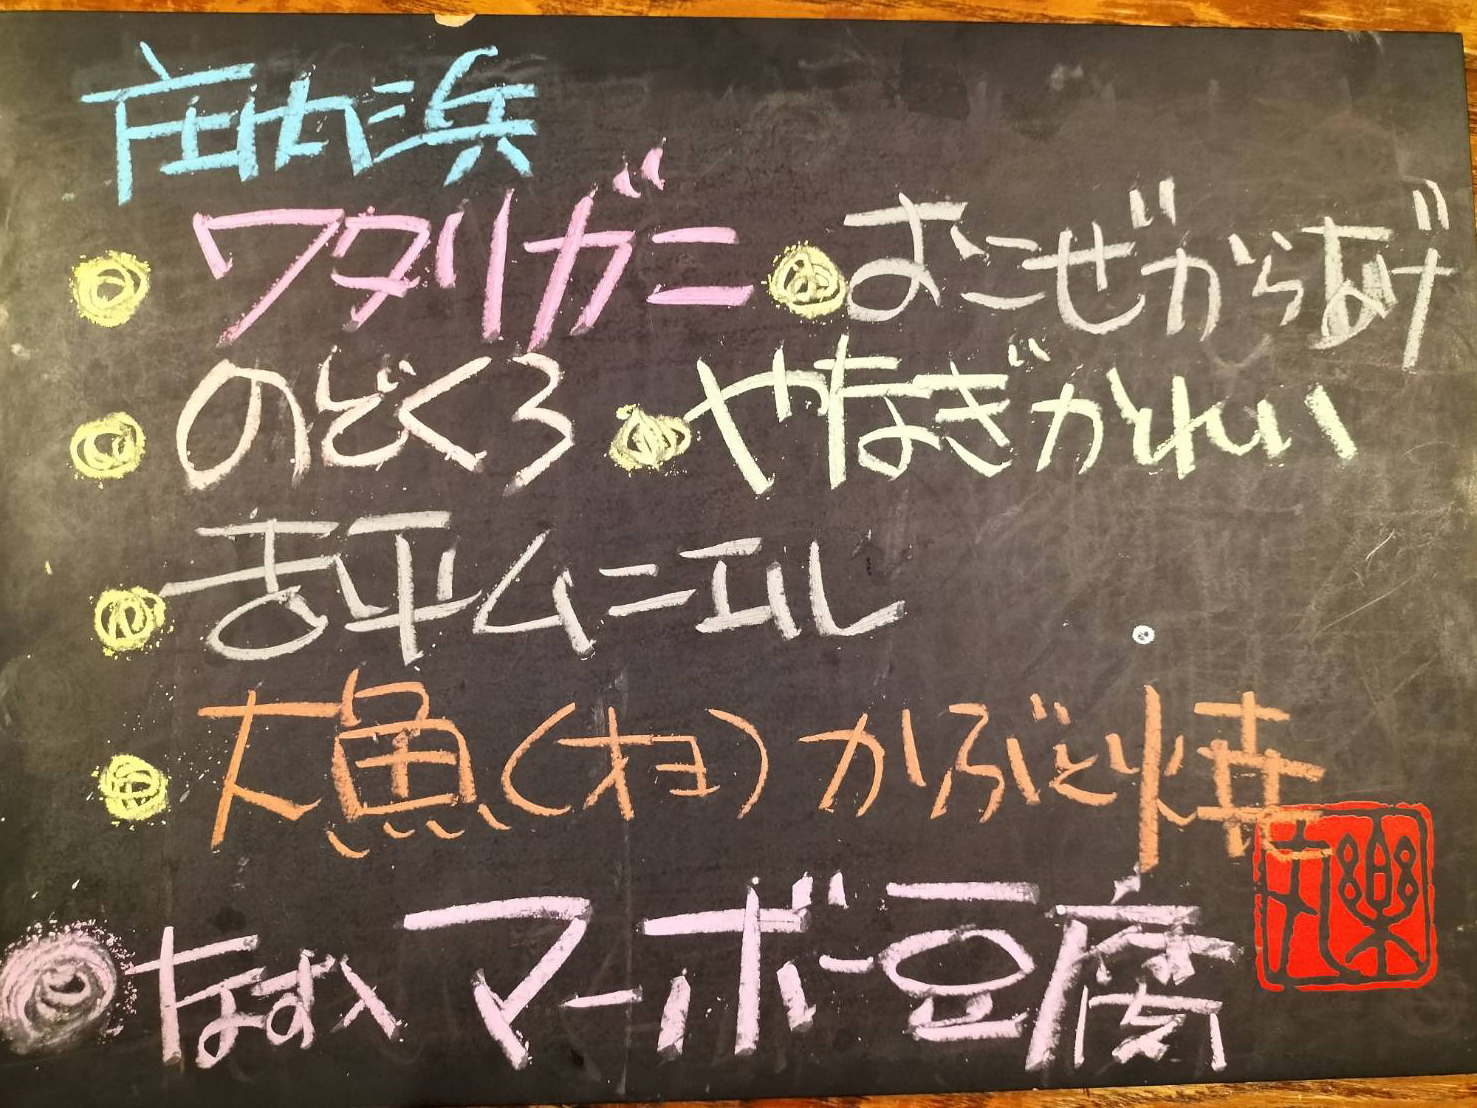 庄内浜
ワタリガニ おこぜからあげ
のどくろ やなぎがれい
舌平ムニエル
大魚(ね)かぶと焼
なす入 マーボー豆腐